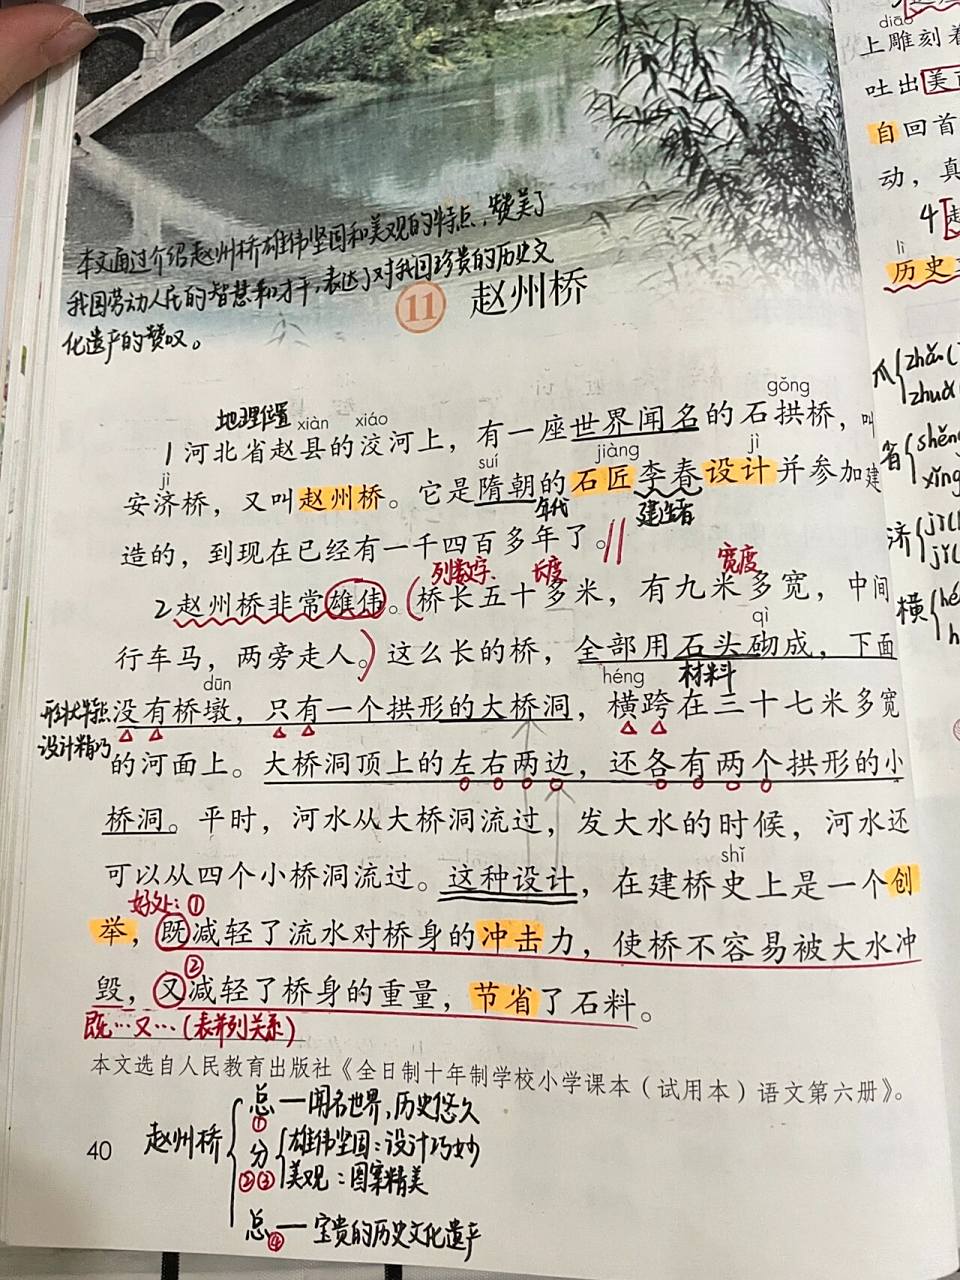 本文通过介绍赵州桥雄伟坚固和美观的特点，赞美了
我国劳动人民的智慧和才干，表达了对我国珍贵的历史文
化遗产的赞叹。
11 赵州桥
地理位置 xiàn xiáo gǒng
1 河北省赵县的洨河上，有一座世界闻名的石拱桥，叫
jì suí jiàng jì
安济桥，又叫赵州桥。它是隋朝的石匠李春设计并参加建
年代 建造者
造的，到现在已经有一千四百多年了。
列数字 长度 宽度
2 赵州桥非常雄伟。(桥长五十多米，有九米多宽，中间
qì
行车马，两旁走人。)这么长的桥，全部用石头砌成，下面
dūn héng 材料
形状特点 没有桥墩，只有一个拱形的大桥洞，横跨在三十七米多宽
设计精巧 的河面上。大桥洞顶上的左右两边，还各有两个拱形的小
桥洞。平时，河水从大桥洞流过，发大水的时候，河水还
shǐ
可以从四个小桥洞流过。这种设计，在建桥史上是一个创
好处：①
举，既减轻了流水对桥身的冲击力，使桥不容易被大水冲
②
毁，又减轻了桥身的重量，节省了石料。
既…又…(表并列关系)
本文选自人民教育出版社《全日制十年制学校小学课本（试用本）语文第六册》。
总一闻名世界，历史悠久
①
40 赵州桥 分 雄伟坚固：设计巧妙
②③ 美观：图案精美
总一宝贵的历史文化遗产
④
diāo
上雕刻着
吐出美
自回首
动，真
4
lì
历史
爪
省
济
横